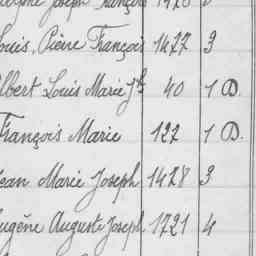 Joseph François 1476
Louis, Pierre François 1477 3
Albert Louis Marie Jh 40 1 D.
François Marie 122 1 D.
Jean Marie Joseph 1428 3
Eugêne Auguste Joseph 1721 4